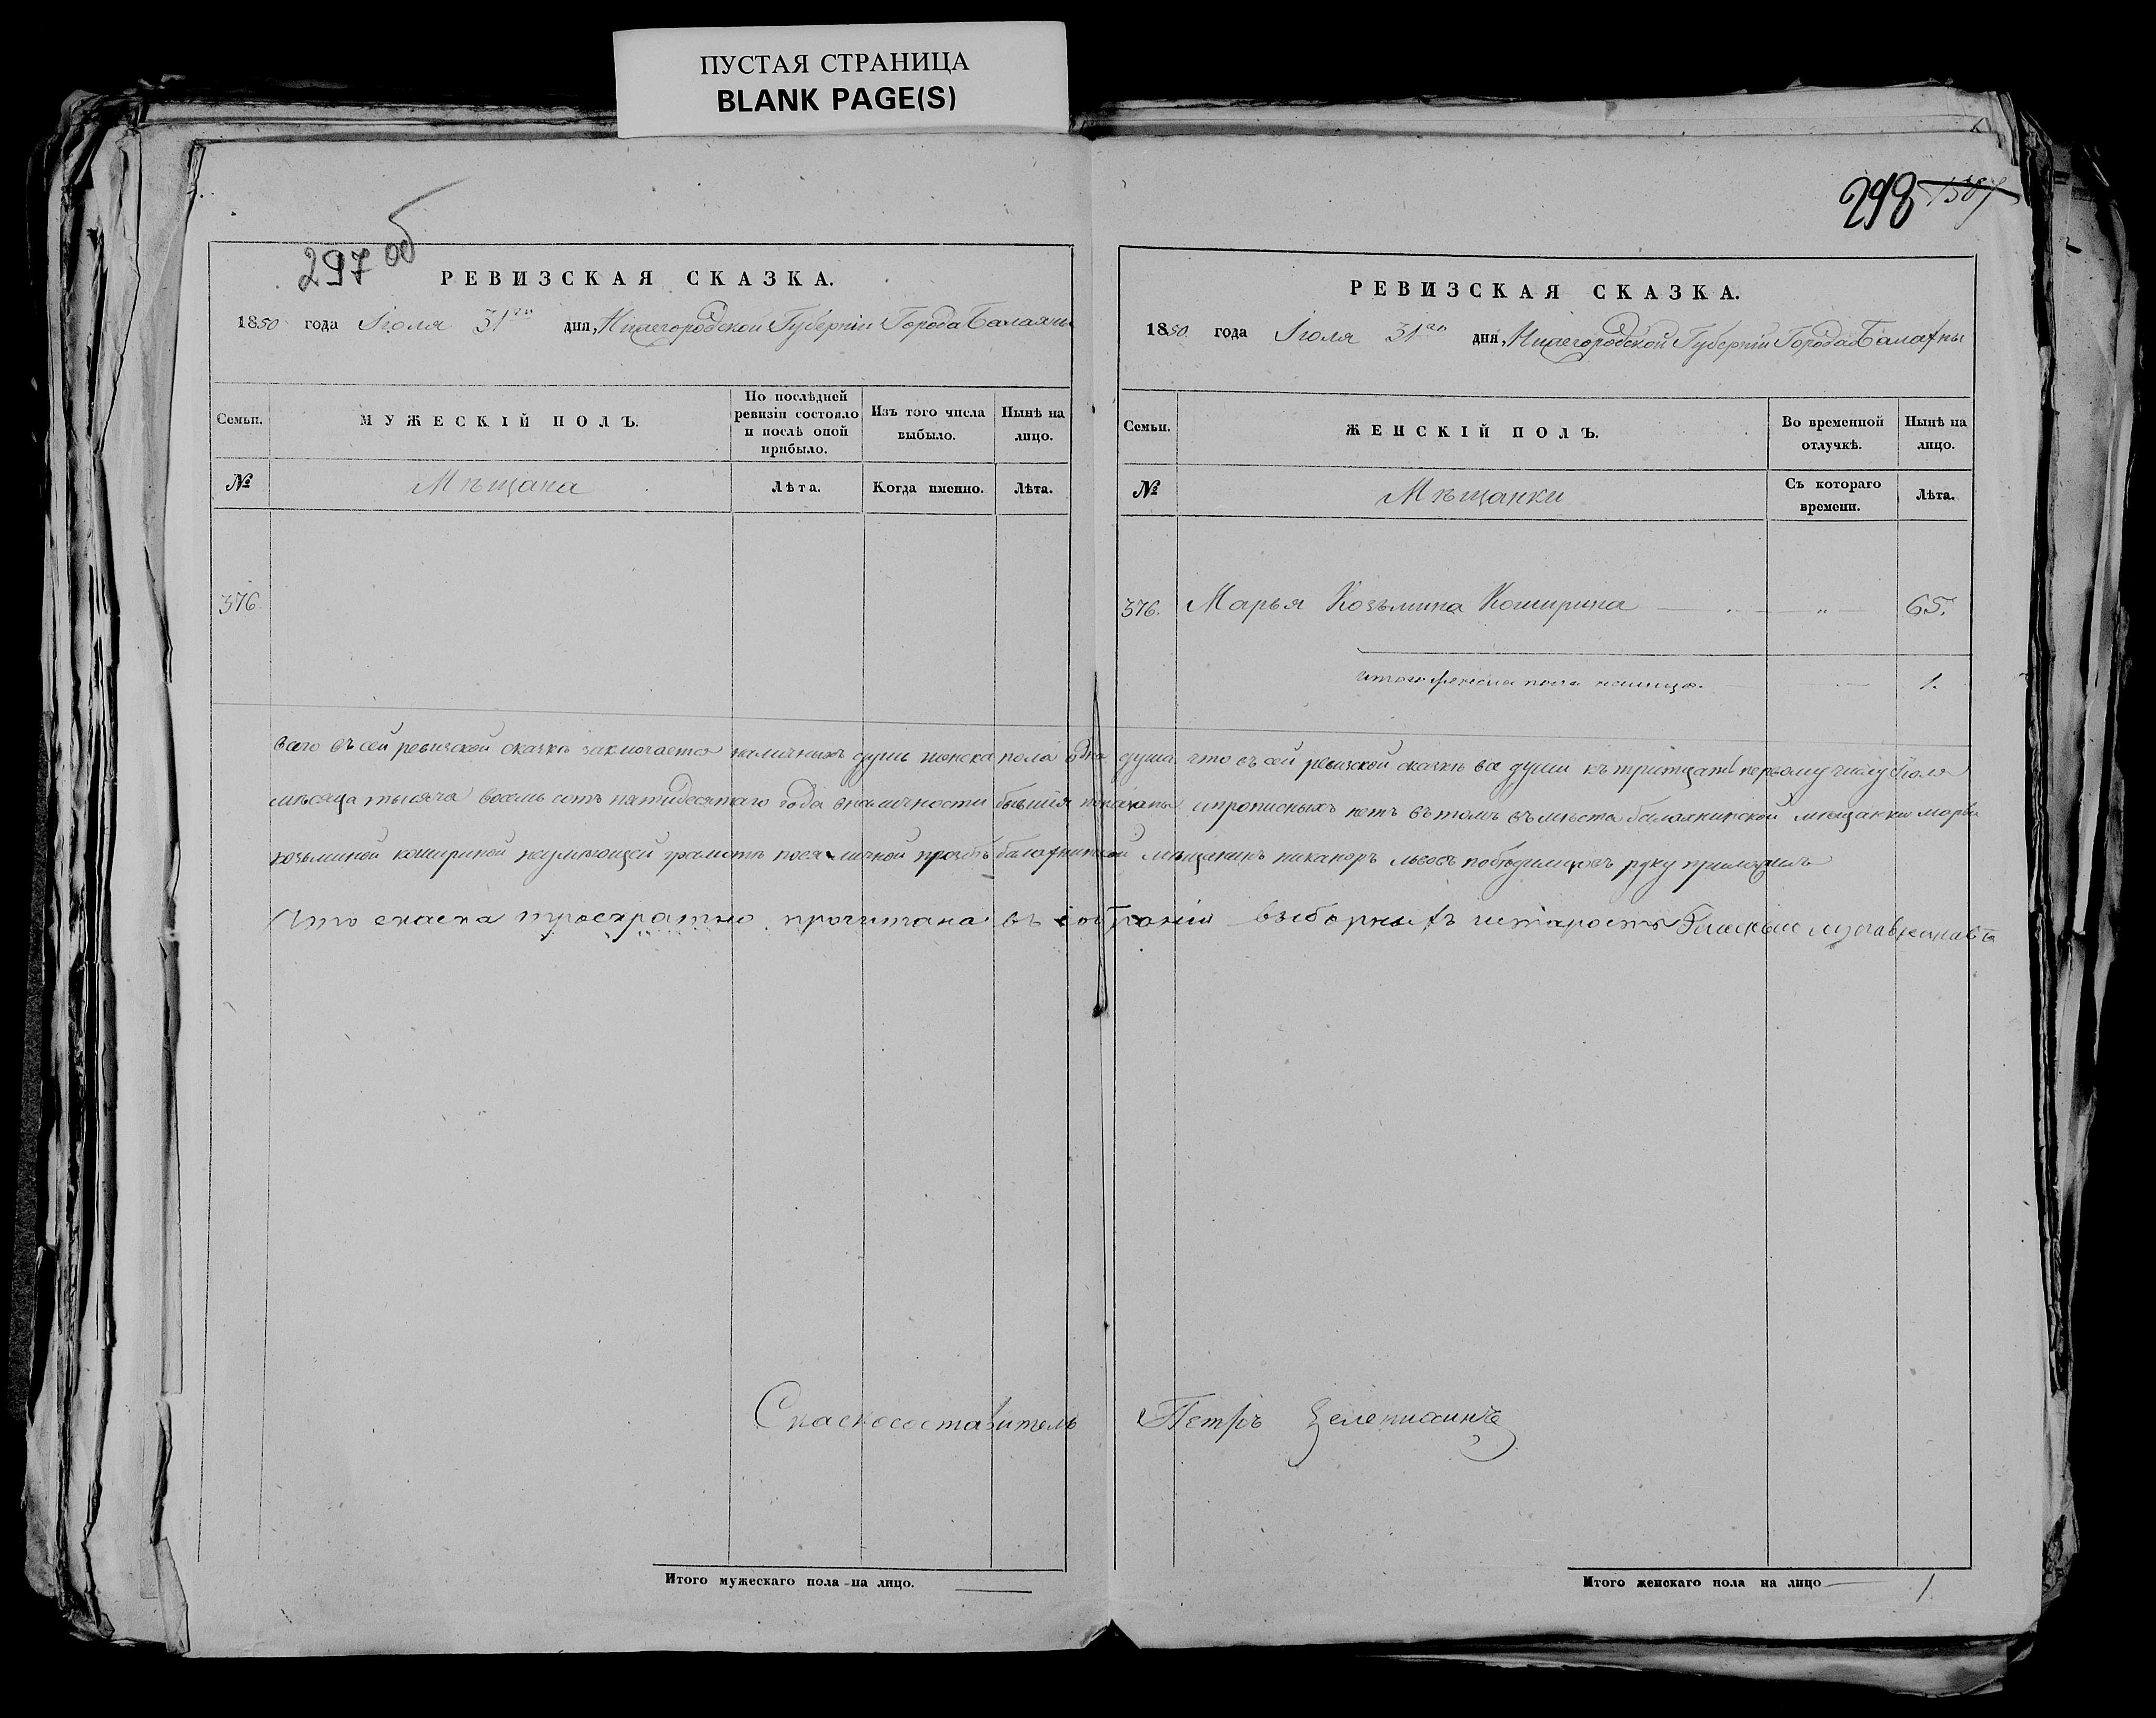 ПУСТАЯ СТРАНИЦА
BLANK PAGE(S)
297 об
РЕВИЗСКАЯ СКАЗКА.
1850 года Іюля 31го дня, Нижегородской Губерніи Города Балахны
Семьи.
МУЖЕСКІЙ ПОЛЪ.
По послѣдней ревизіи состояло и послѣ оной прибыло.
Изъ того числа выбыло.
Нынѣ на лицо.
№
Мѣщана
Лѣта.
Когда именно.
Лѣта.
376
298 1507
РЕВИЗСКАЯ СКАЗКА.
1850 года Іюля 31го дня, Нижегородской Губерніи Города Балахны
Семьи.
ЖЕНСКІЙ ПОЛЪ.
Во временной отлучкѣ.
Нынѣ на лицо.
№
Мѣщанки
Съ котораго времени.
Лѣта.
376. Марья Козьмина Коширина — „ — „ 65.
итого женска пола налицо. — 1.
всего въ сей ревизской сказкѣ заключается наличныхъ душъ женска пола одна душа что въ сей ревизской сказкѣ все души къ тритцать первому числу Іюля
мѣсяца тысяча восемь сотъ пятидесятаго года вналичности бывшія показаны ипрописныхъ нетъ въ томъ въместа балахнинской мещанки марьи
козьминой кошириной неумѣющей грамотѣ пося личной прозбѣ балахнинской мѣщанинъ никаноръ львовъ победимцовъ руку приложилъ
Что скаска троекратно прочитана въ собраніи выборныхъ истароста
Скаскосоставитель Петръ Зелепихинъ
Итого мужескаго пола на лицо. —
Итого женскаго пола на лицо — 1.